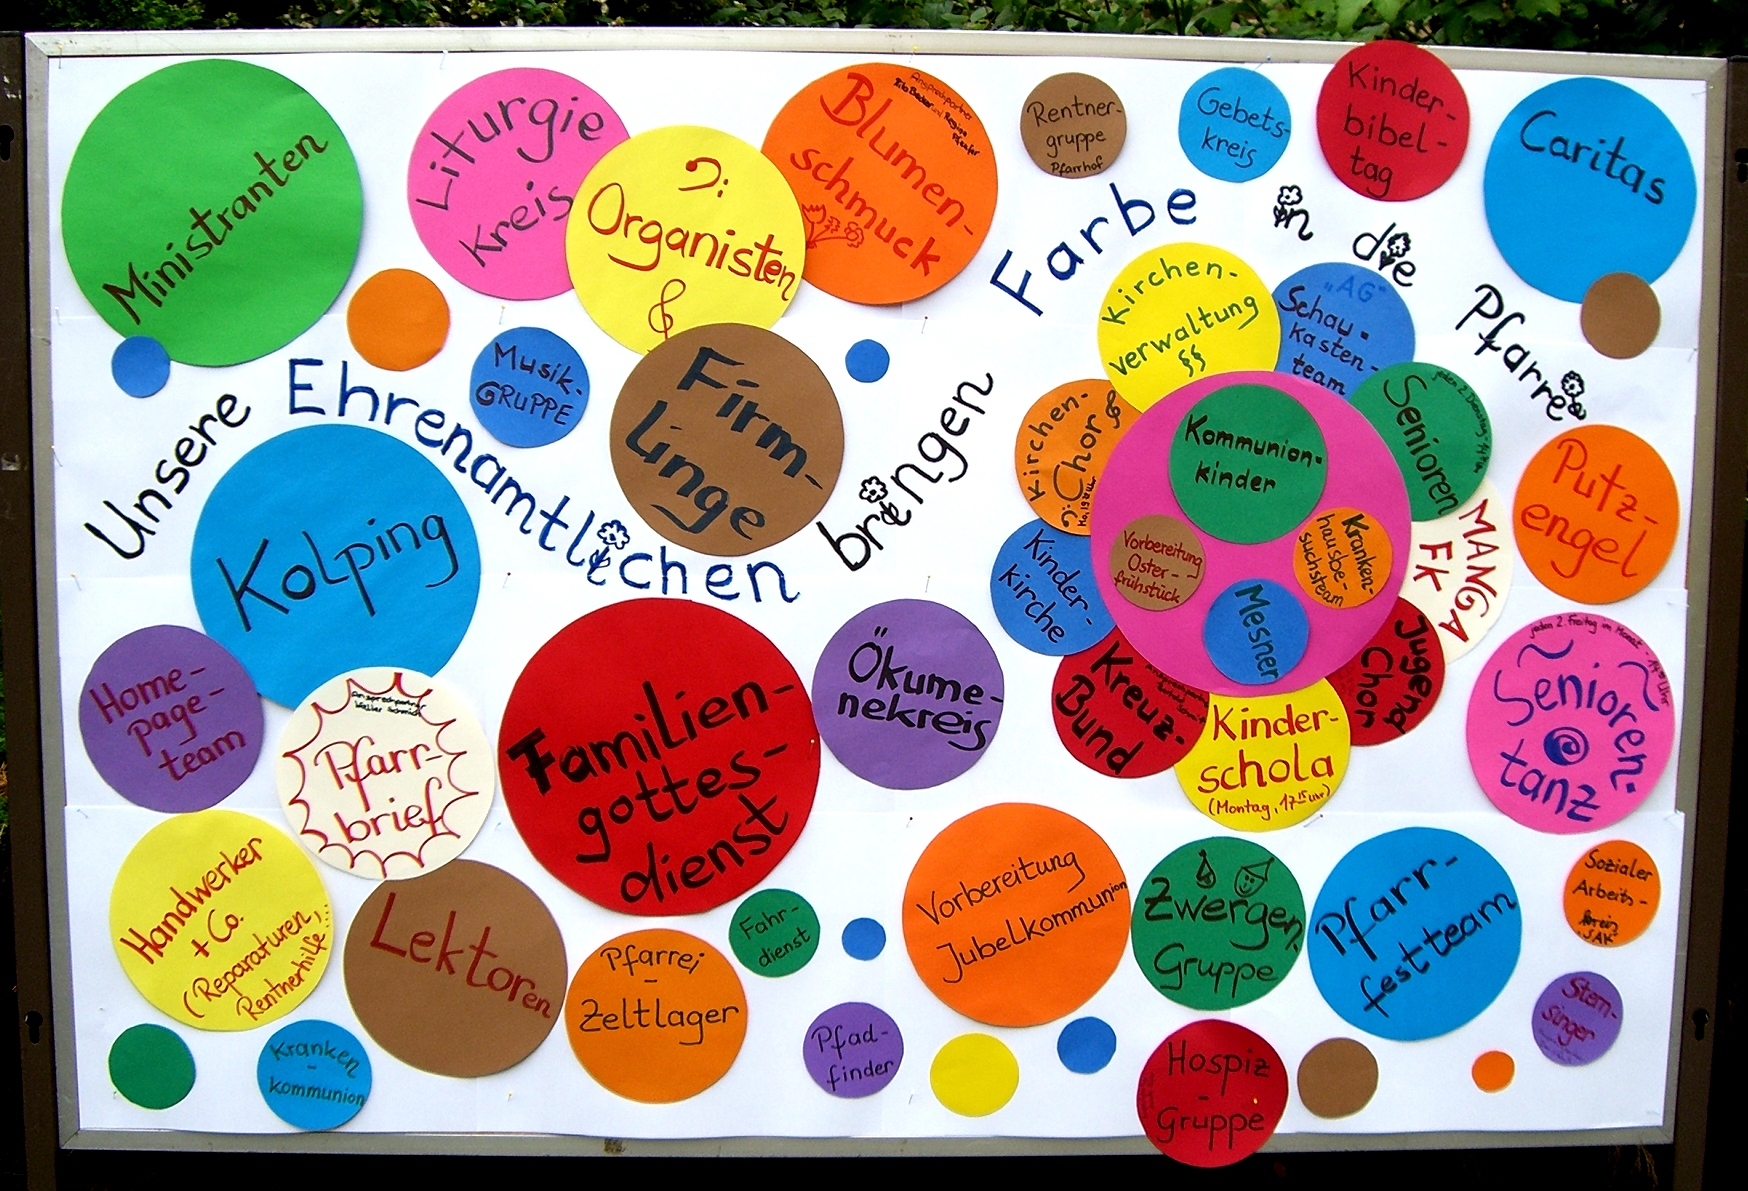 Unsere Ehrenamtlichen bringen Farbe in die Pfarrei
Ministranten
Liturgie
kreis
Organisten
Blumen-
schmuck
Ansprechpartner
Rentner-
gruppe
Pfarrhof
Gebets-
kreis
Kinder-
bibel-
tag
Caritas
Musik-
GRUPPE
Firm-
linge
Kirchen-
verwaltung
§§
"AG"
Schau-
kasten-
team
Kirchen-
Chor
Senioren
jeden 2. Dienstag
Kommunion-
kinder
Vorbereitung
Oster-
frühstück
Kranken-
hausbe-
suchsteam
Mesner
MANGA
FK
Putz-
engel
Kinder-
kirche
Kreuz-
Bund
Kinder-
schola
(Montag, 17 15 Uhr)
Jugend
Chor
jeden 2. Freitag im Monat - 14 00 Uhr
Senioren-
tanz
Kolping
Home-
page-
team
Ansprechpartner
Walter Schmidt
Pfarr-
brief
Familien-
gottes-
dienst
Ökume-
nekreis
Handwerker
+ Co.
(Reparaturen,
Rentnerhilfe...
Lektoren
Pfarrei
-
Zeltlager
Fahr-
dienst
Vorbereitung
Jubelkommunion
Zwergen-
Gruppe
Pfarr-
festteam
Sozialer
Arbeits-
kreis
"SAK"
Kranken
-
kommunion
Pfad-
finder
Hospiz
-
Gruppe
Stern-
singer